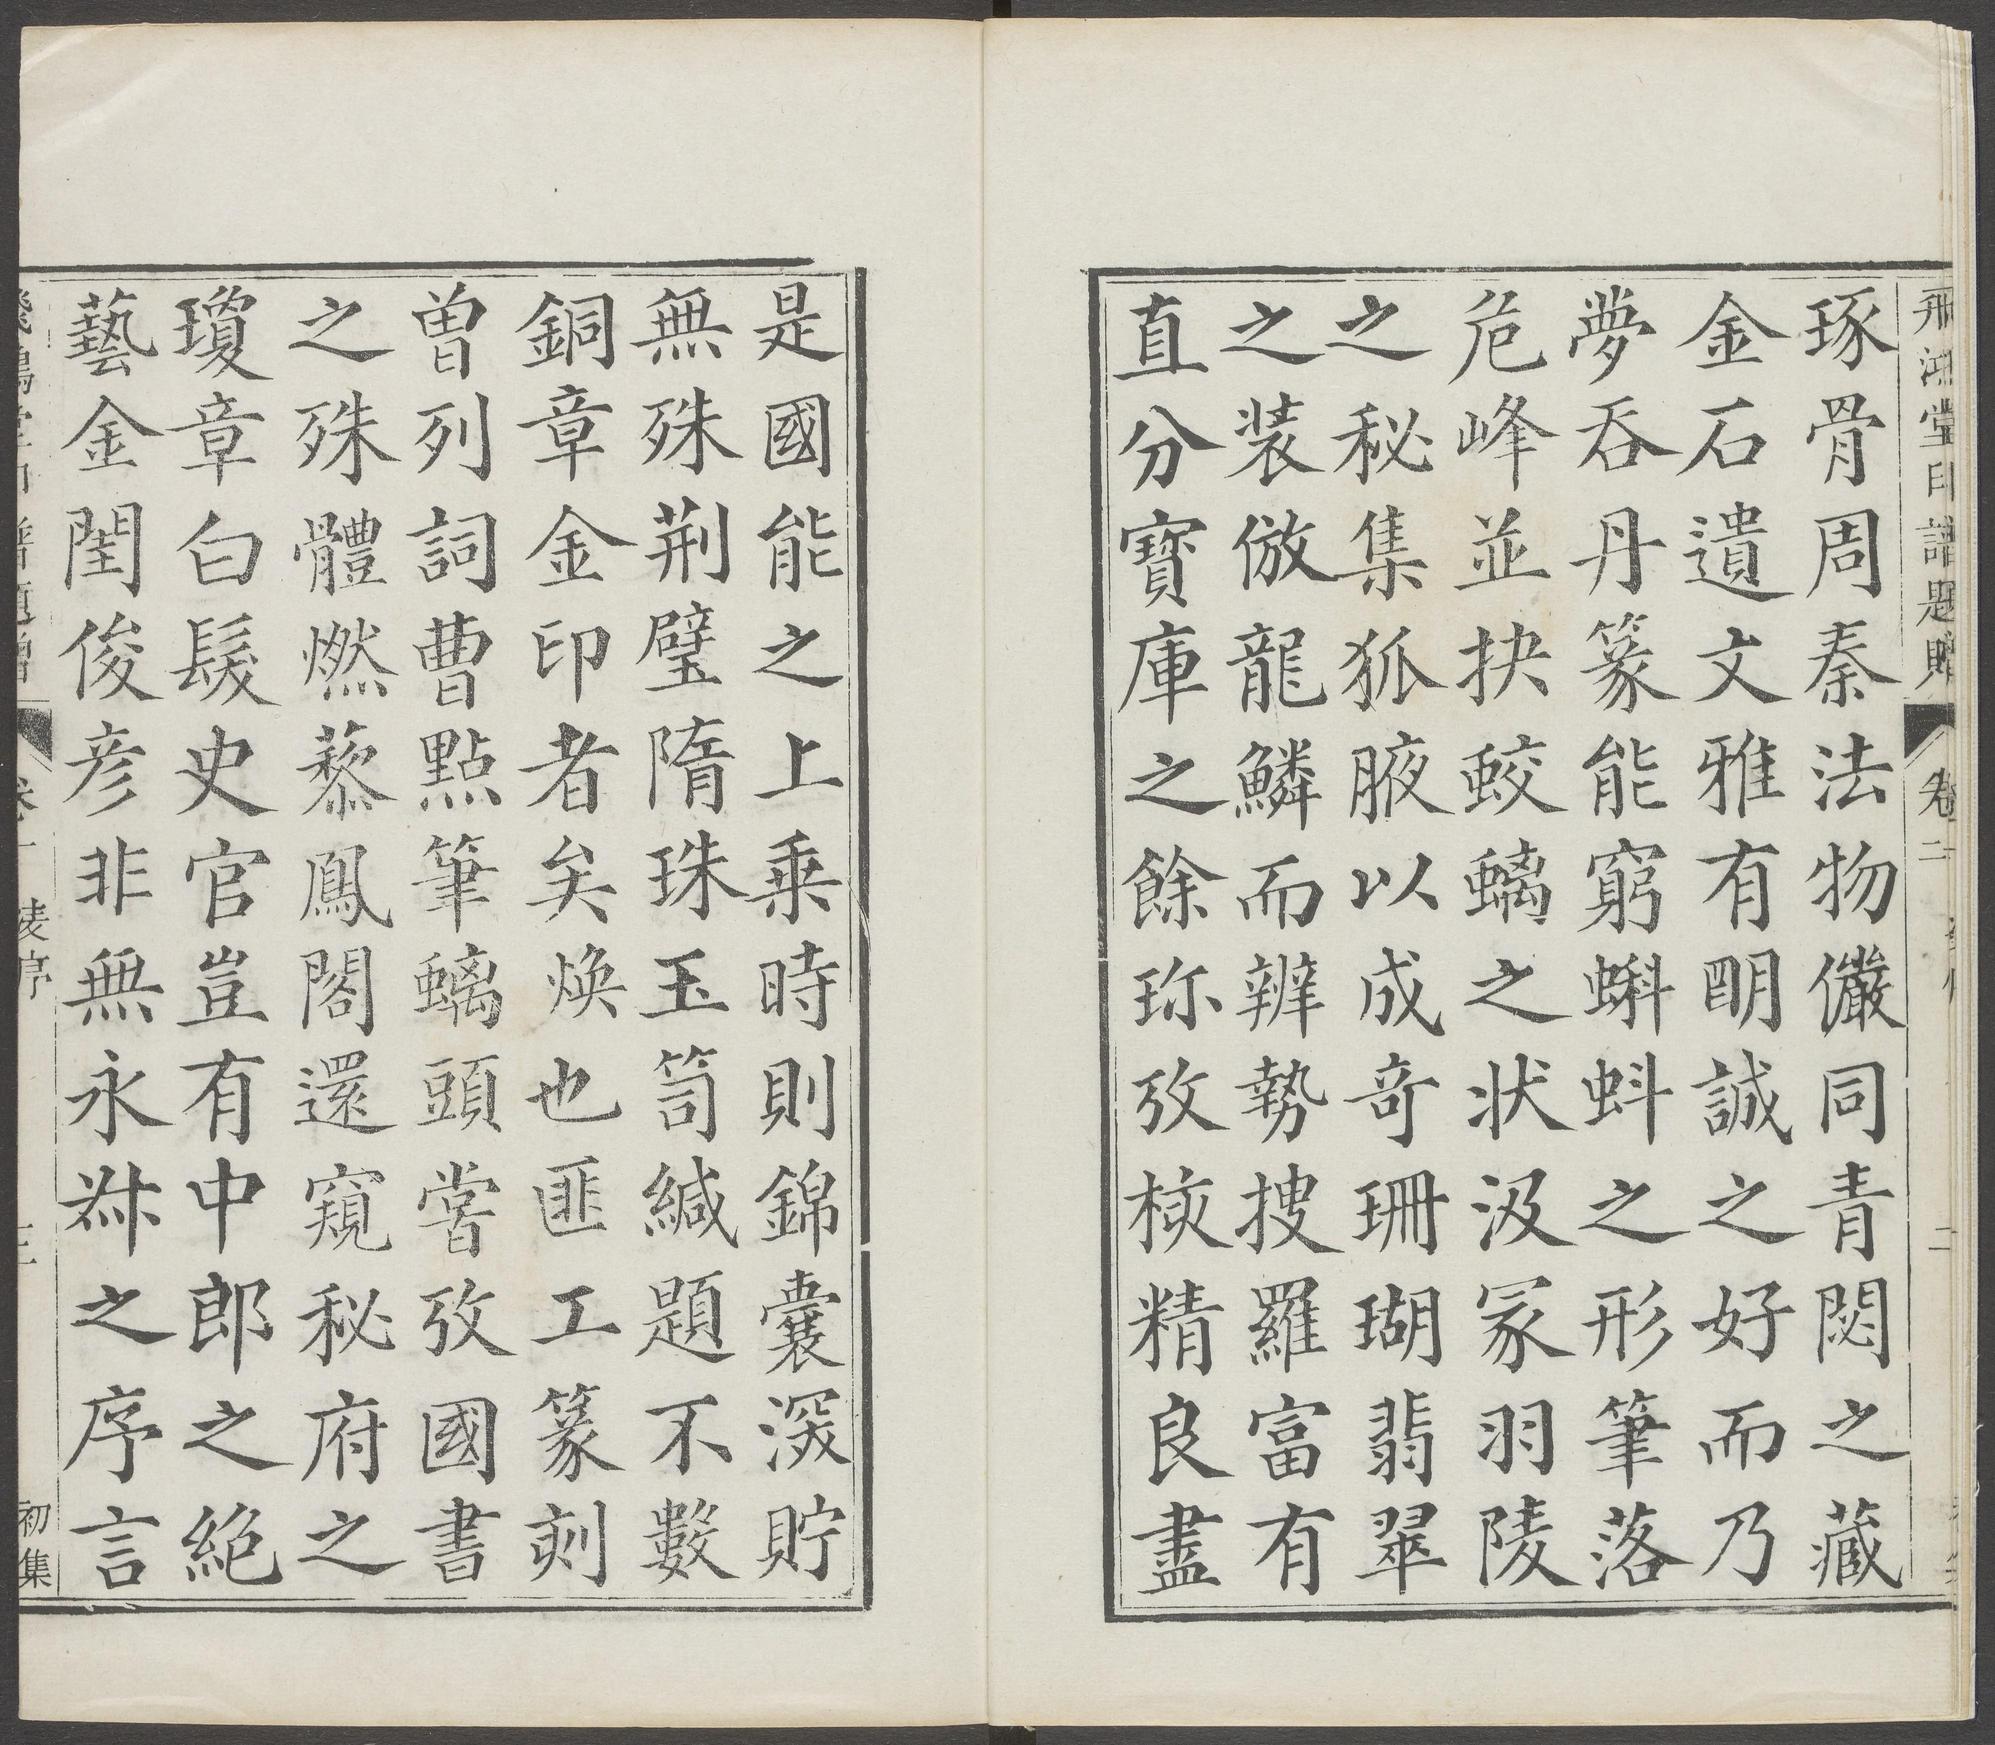 飛鴻堂印譜題贈 卷二 二
琢骨周秦法物儼同青閟之藏
金石遺文雅有明誠之好而乃
夢吞丹篆能窮蝌蚪之形筆落
危峰並抉蛟螭之狀汲冢羽陵
之秘集狐腋以成奇珊瑚翡翠
之裝倣龍鱗而辨勢搜羅富有
直分寶庫之餘珎攷核精良盡
是國能之上乗時則錦囊深貯
無殊荆璧隋珠玉笥緘題不數
銅章金印者矣焕也匪工篆刻
曽列詞曹點筆螭頭嘗攷國書
之殊體燃藜鳳閣還窺秘府之
瓊章白髮史官豈有中郎之絶
藝金閨俊彦非無永叔之序言
飛鴻堂印譜題贈 淩序 三 初集